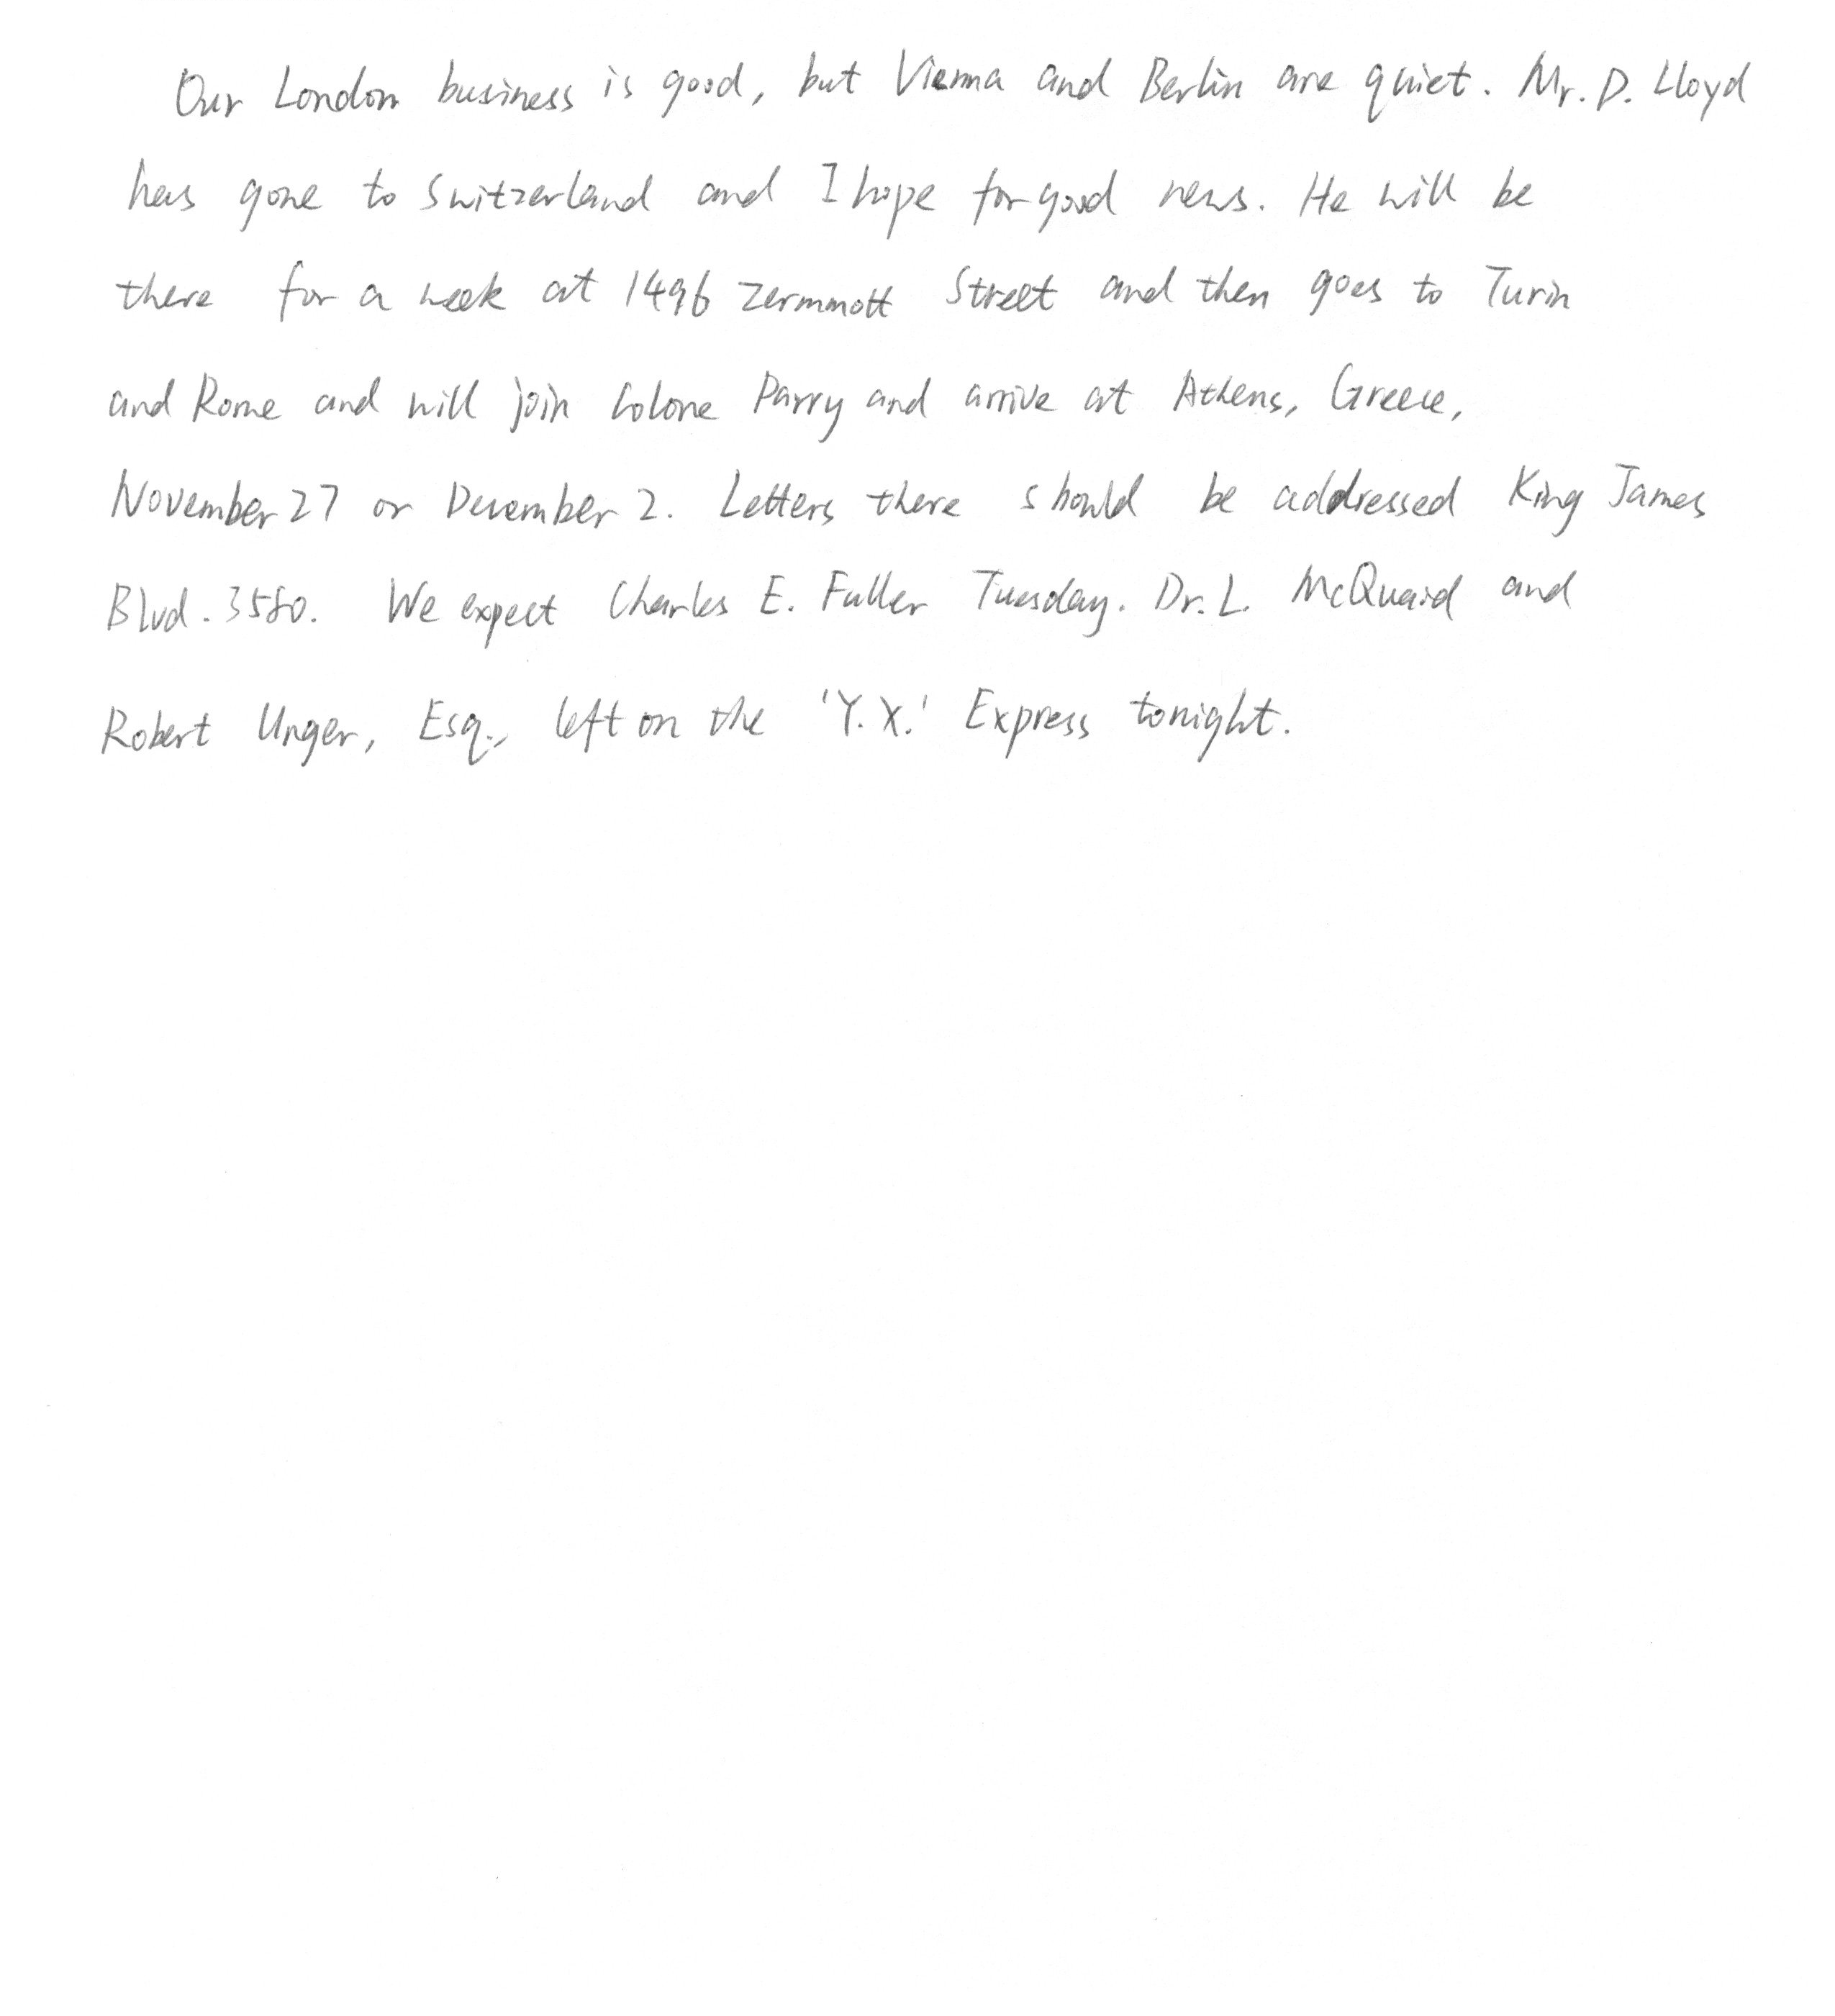 Our London business is good, but Vienna and Berlin are quiet. Mr. D. Lloyd
has gone to Switzerland and I hope for good news. He will be
there for a week at 1496 Zermmott Street and then goes to Turin
and Rome and will join Colone Parry and arrive at Athens, Greece,
November 27 or December 2. Letters there should be addressed King James
Blvd. 3580. We expect Charles E. Fuller Tuesday. Dr. L. McQuaid and
Robert Unger, Esq., left on the 'Y.X.' Express tonight.